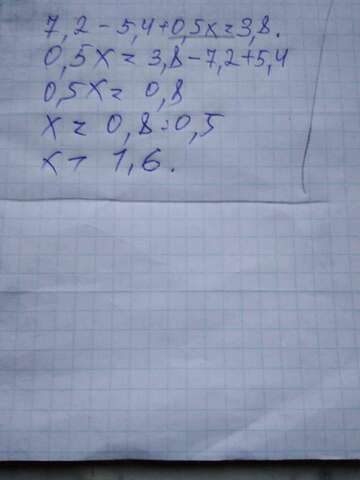 7,2 - 5,4 + 0,5x = 3,8.
0,5x = 3,8 - 7,2 + 5,4
0,5x = 0,8
x = 0,8 : 0,5
x = 1,6.